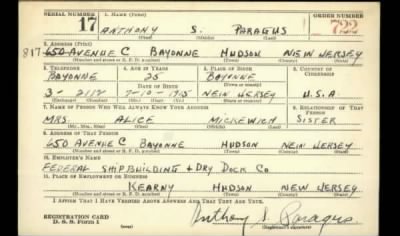 SERIAL NUMBER 1. NAME (Print) ORDER NUMBER
17 ANTHONY S. PARAGUS 722
(First) (Middle) (Last)
2. ADDRESS (Print)
817 650 AVENUE C BAYONNE HUDSON NEW JERSEY
(Number and street or R. F. D. number) (Town) (County) (State)
3. TELEPHONE 4. AGE IN YEARS 5. PLACE OF BIRTH 6. COUNTRY OF CITIZENSHIP
BAYONNE 25 BAYONNE
DATE OF BIRTH (Town or county)
3-2117 7-10-1915 NEW JERSEY U.S.A.
(Exchange) (Number) (Mo.) (Day) (Yr.) (State or country)
7. NAME OF PERSON WHO WILL ALWAYS KNOW YOUR ADDRESS 8. RELATIONSHIP OF THAT PERSON
MRS. ALICE MICKEWICH SISTER
(Mr., Mrs., Miss) (First) (Middle) (Last)
9. ADDRESS OF THAT PERSON
650 AVENUE C BAYONNE HUDSON NEW JERSEY
(Number and street or R. F. D. number) (Town) (County) (State)
10. EMPLOYER'S NAME
FEDERAL SHIPBUILDING & DRY DOCK CO
11. PLACE OF EMPLOYMENT OR BUSINESS
KEARNY HUDSON NEW JERSEY
(Number and street or R. F. D. number) (Town) (County) (State)
I AFFIRM THAT I HAVE VERIFIED ABOVE ANSWERS AND THAT THEY ARE TRUE.
REGISTRATION CARD
D. S. S. Form 1 (over) Anthony S. Paragus
(Registrant's signature)